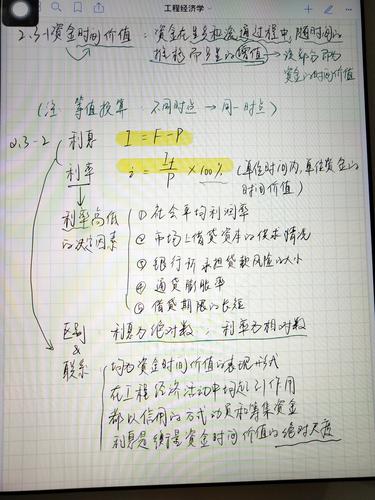 工程经济学
2.3-1 资金时间价值:资金在生产和流通过程中,随时间的
推移而产生的增值→该部分即为
资金的时间价值
(注:等值换算:不同时点→同一时点)
2.3-2 利息 I = F - P
利率 i = It/P × 100% (单位时间内,单位资金的
时间价值)
利率高低
的决定因素
① 社会平均利润率
② 市场上借贷资本的供求情况
③ 银行所承担贷款风险的大小
④ 通货膨胀率
⑤ 借贷期限的长短
区别
&
联系
利息为绝对数,利率为相对数
均为资金时间价值的表现形式
在工程经济活动中均起到作用
都以信用的方式动员和筹集资金
利息是衡量资金时间价值的绝对尺度